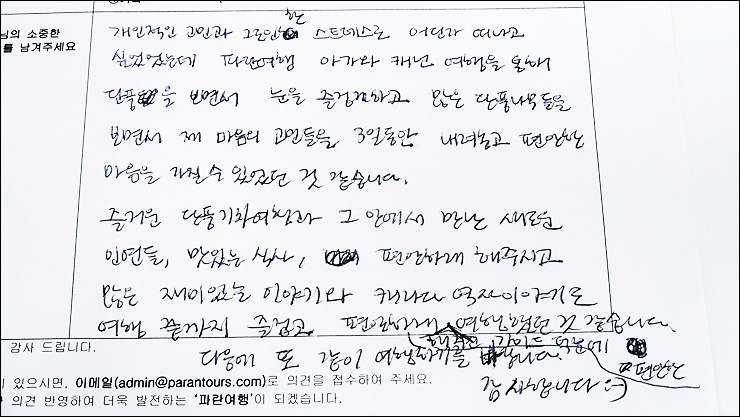 님의 소중한
를 남겨주세요
개인적인 고민과 그로인한 스트레스로 어딘가 떠나고
싶었었는데 파란여행 아가와 캐년 여행을 통해
단풍을 보면서 눈을 즐겁게하고 많은 단풍나무들을
보면서 제 마음의 고민들을 3일동안 내려놓고 편안한
마음을 가질수 있었던 것 같습니다.
즐거운 단풍기차여행과 그 안에서 만난 새로운
인연들, 맛있는 식사, 편안하게 해주시고
많은 재미있는 이야기와 캐나다 역사이야기로
여행 끝까지 즐겁고 편안하게 여행했던 것 같습니다.
해주신 가이드 덕분에 편안한
감사 드립니다.
다음에 또 같이 여행하기를 바랍니다.
감사합니다
이 있으시면, 이메일(admin@parantours.com)로 의견을 접수하여 주세요.
의견 반영하여 더욱 발전하는 '파란여행'이 되겠습니다.